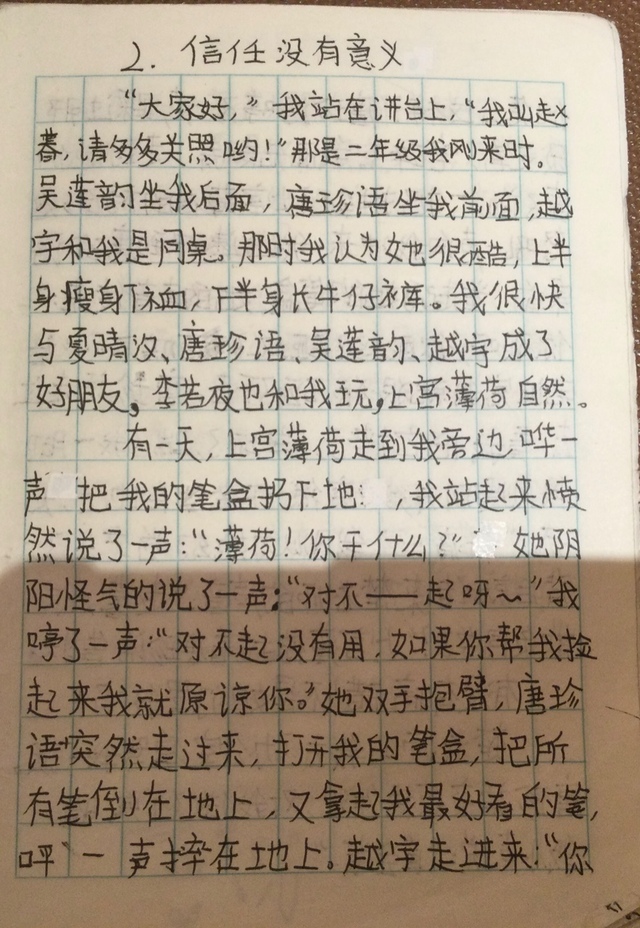 2. 信任没有意义
“大家好，”我站在讲台上，“我叫赵
暮，请多多关照哟！”那是二年级我刚来时。
吴莲韵坐我后面，唐珍语坐我前面，越
宇和我是同桌。那时我认为她很酷，上半
身瘦身T裇，下半身长牛仔裤。我很快
与夏晴汐、唐珍语、吴莲韵、越宇成了
好朋友，李若夜也和我玩，上宫薄荷自然。
有一天，上宫薄荷走到我旁边，哗一
声把我的笔盒扔下地，我站起来愤
然说了一声：“薄荷！你干什么？”她阴
阳怪气的说了一声：“对不——起呀～”我
哼了一声：“对不起没有用，如果你帮我捡
起来我就原谅你。”她双手抱臂，唐珍
语突然走过来，打开我的笔盒，把所
有笔倒在地上，又拿起我最好看的笔，
呯一声摔在地上。越宇走进来：“你